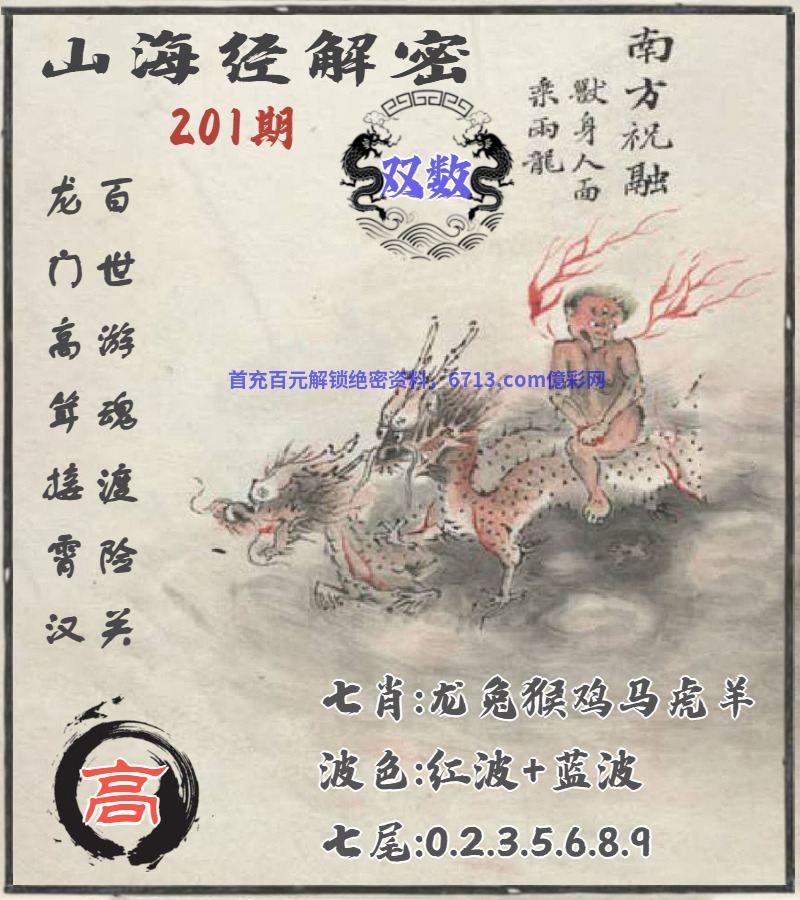 山海经解密
201期
双数
南方祝融
獸身人面
乘兩龍
百世游魂渡险关
龙门高耸接霄汉
首充百元解锁绝密资料，6713.com億彩网
七肖:龙兔猴鸡马虎羊
波色:红波+蓝波
七尾:0.2.3.5.6.8.9
高